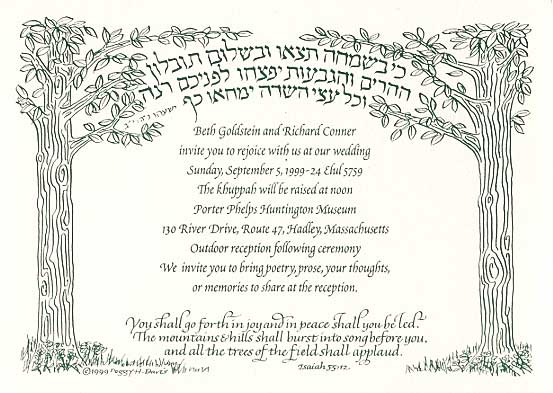 כי בשמחה תצאו ובשלום תובלון
ההרים והגבעות יפצחו לפניכם רנה
וכל עצי השדה ימחאו כף
Beth Goldstein and Richard Conner
invite you to rejoice with us at our wedding
Sunday, September 5, 1999-24 Elul 5759
The khuppah will be raised at noon
Porter Phelps Huntington Museum
130 River Drive, Route 47, Hadley, Massachusetts
Outdoor reception following ceremony
We invite you to bring poetry, prose, your thoughts,
or memories to share at the reception.
You shall go forth in joy and in peace shall you be led.
The mountains & hills shall burst into song before you,
and all the trees of the field shall applaud.
Isaiah 55:12.
©1999 Peggy H. Davis